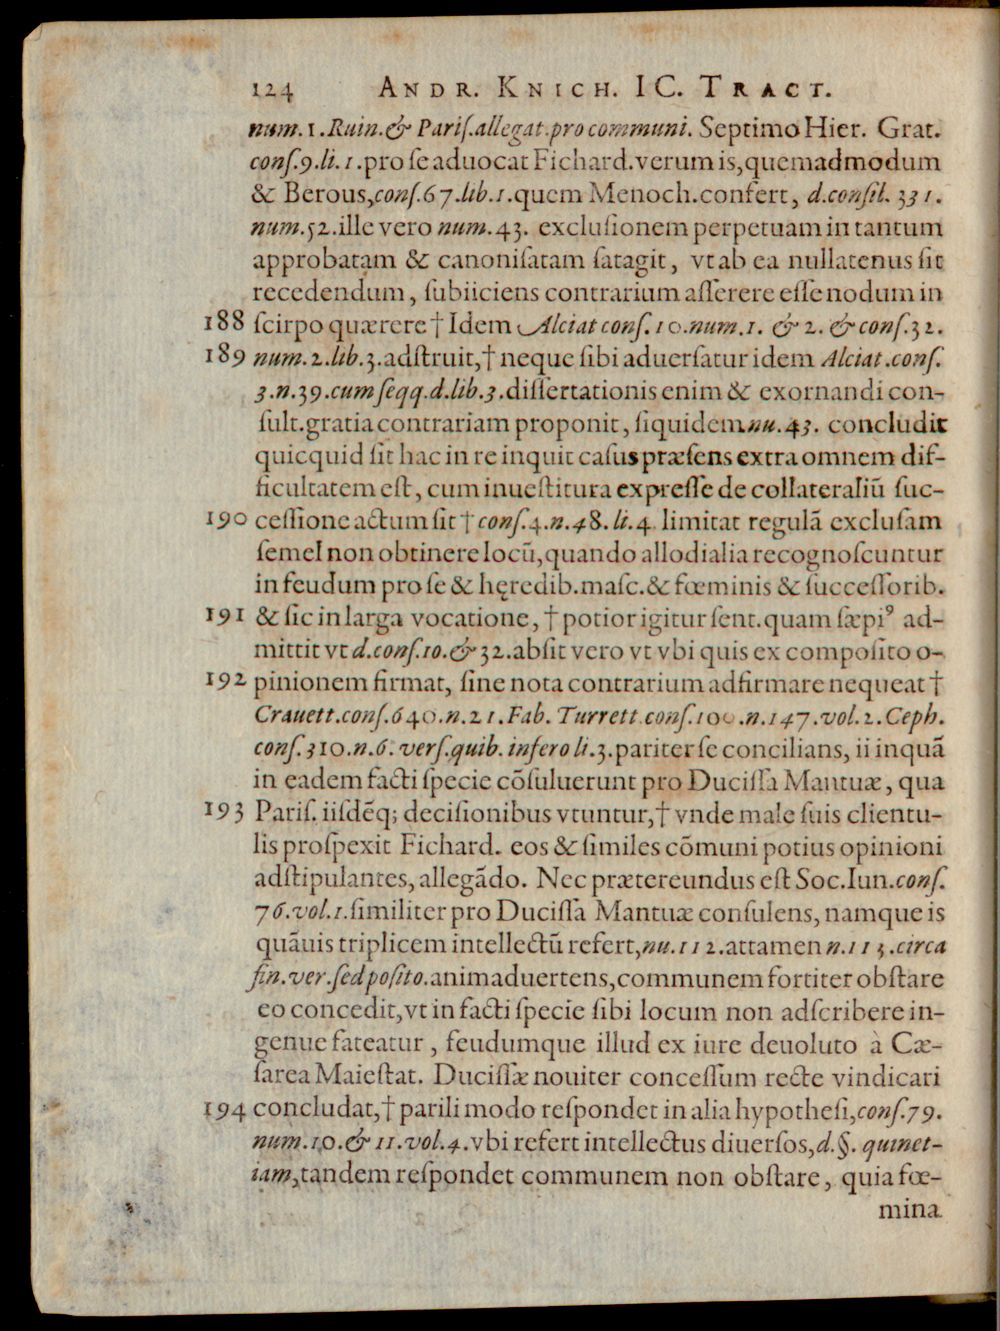 124 ANDR. KNICH. IC. TRACT.
num. 1. Ruin. & Pariſ. allegat. pro communi. Septimo Hier. Grat.
conſ. 9. li. 1. pro ſe aduocat Fichard. verum is, quemadmodum
& Berous, conſ. 67. lib. 1. quem Menoch. confert, d. conſil. 331.
num. 52. ille vero num. 43. excluſionem perpetuam in tantum
approbatam & canoniſatam ſatagit, vt ab ea nullatenus ſit
recedendum, ſubiiciens contrarium aſſerere eſſe nodum in
188 ſcirpo quærere † Idem Alciat conſ. 10. num. 1. & 2. & conſ. 32.
189 num. 2. lib. 3. adſtruit, † neque ſibi aduerſatur idem Alciat. conſ.
3. n. 39. cum ſeqq. d. lib. 3. diſſertationis enim & exornandi con-
ſult. gratia contrariam proponit, ſiquidem nu. 43. concludit
quicquid ſit hac in re inquit caſus præſens extra omnem dif-
ficultatem eſt, cum inueſtitura expreſſe de collateraliū ſuc-
190 ceſſione actum ſit † conſ. 4. n. 48. li. 4. limitat regulā excluſam
ſemel non obtinere locū, quando allodialia recognoſcuntur
in feudum pro ſe & hęredib. maſc. & fœminis & ſucceſſorib.
191 & ſic in larga vocatione, † potior igitur ſent. quam ſæpiꝰ ad-
mittit vt d. conſ. 10. & 32. abſit vero vt vbi quis ex compoſito o-
192 pinionem firmat, ſine nota contrarium adfirmare nequeat †
Crauett. conſ. 640. n. 21. Fab. Turrett. conſ. 100. n. 147. vol. 2. Ceph.
conſ. 310. n. 6. verſ. quib. infero li. 3. pariter ſe concilians, ii inquā
in eadem facti ſpecie cōſuluerunt pro Duciſſa Mantuæ, qua
193 Pariſ. iiſdēq; deciſionibus vtuntur, † vnde male ſuis clientu-
lis proſpexit Fichard. eos & ſimiles cōmuni potius opinioni
adſtipulantes, allegādo. Nec prætereundus eſt Soc. Iun. conſ.
76. vol. 1. ſimiliter pro Duciſſa Mantuæ conſulens, namque is
quāuis triplicem intellectū refert, nu. 112. attamen n. 113. circa
fin. ver. ſed poſito. animaduertens, communem fortiter obſtare
eo concedit, vt in facti ſpecie ſibi locum non adſcribere in-
genue fateatur, feudumque illud ex iure deuoluto à Cæ-
ſarea Maieſtat. Duciſſæ nouiter conceſſum recte vindicari
194 concludat, † parili modo reſpondet in alia hypotheſi, conſ. 79.
num. 10. & 11. vol. 4. vbi refert intellectus diuerſos, d. §. quinet-
iam, tandem reſpondet communem non obſtare, quia fœ-
mina